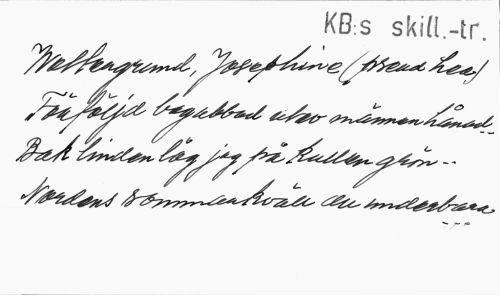 KB:s skill.-tr.
Wettergrund, Josephine (pseud Lea)
Förföljd begabbad utav männen hånad..
Bak linden låg jag på kullen grön..
Nordens sommarkväll du underbara...